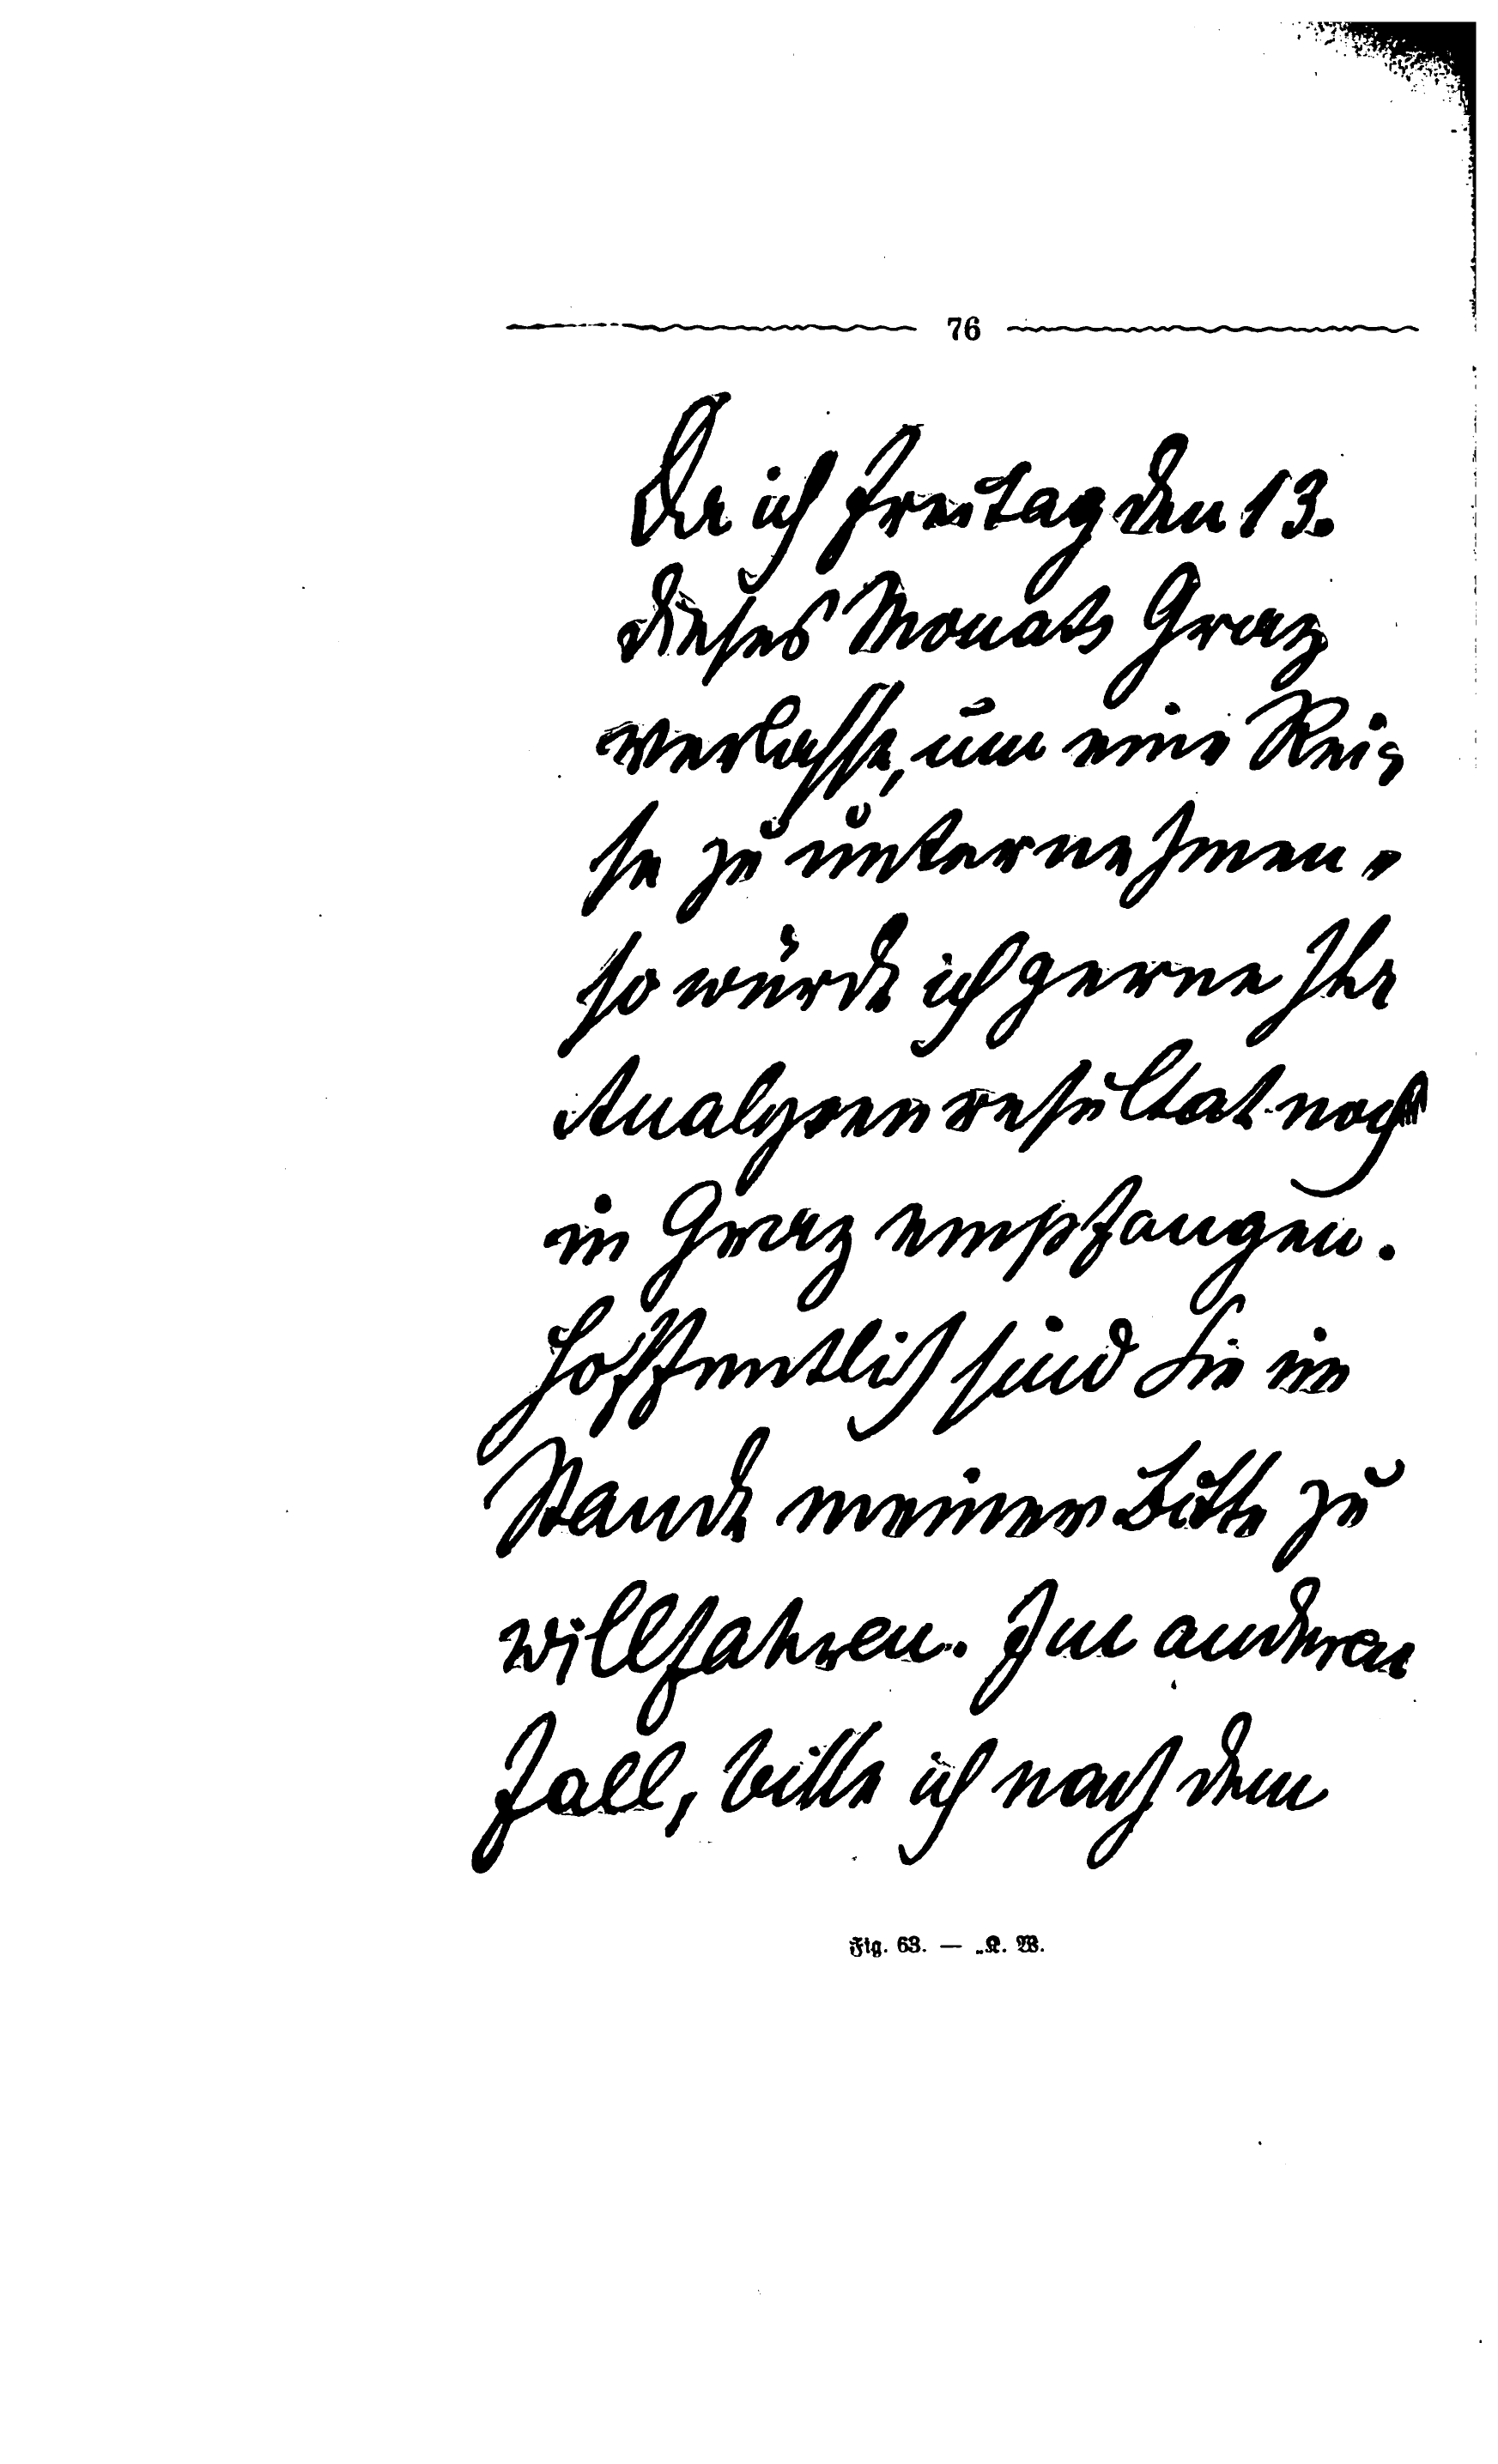 76
Da ich Freitag den 13.
dieses Monats Graz
verlasse, um eine Rei=
se zu unternehmen,
so würde ich gerne Ihr
Analysenresultat noch
in Graz empfangen.
Hoffentlich sind Sie im
Stande meiner Bitte zu
willfahren. Im anderen
Fall, bitte ich nach dem
Fig. 63. — „K. W.